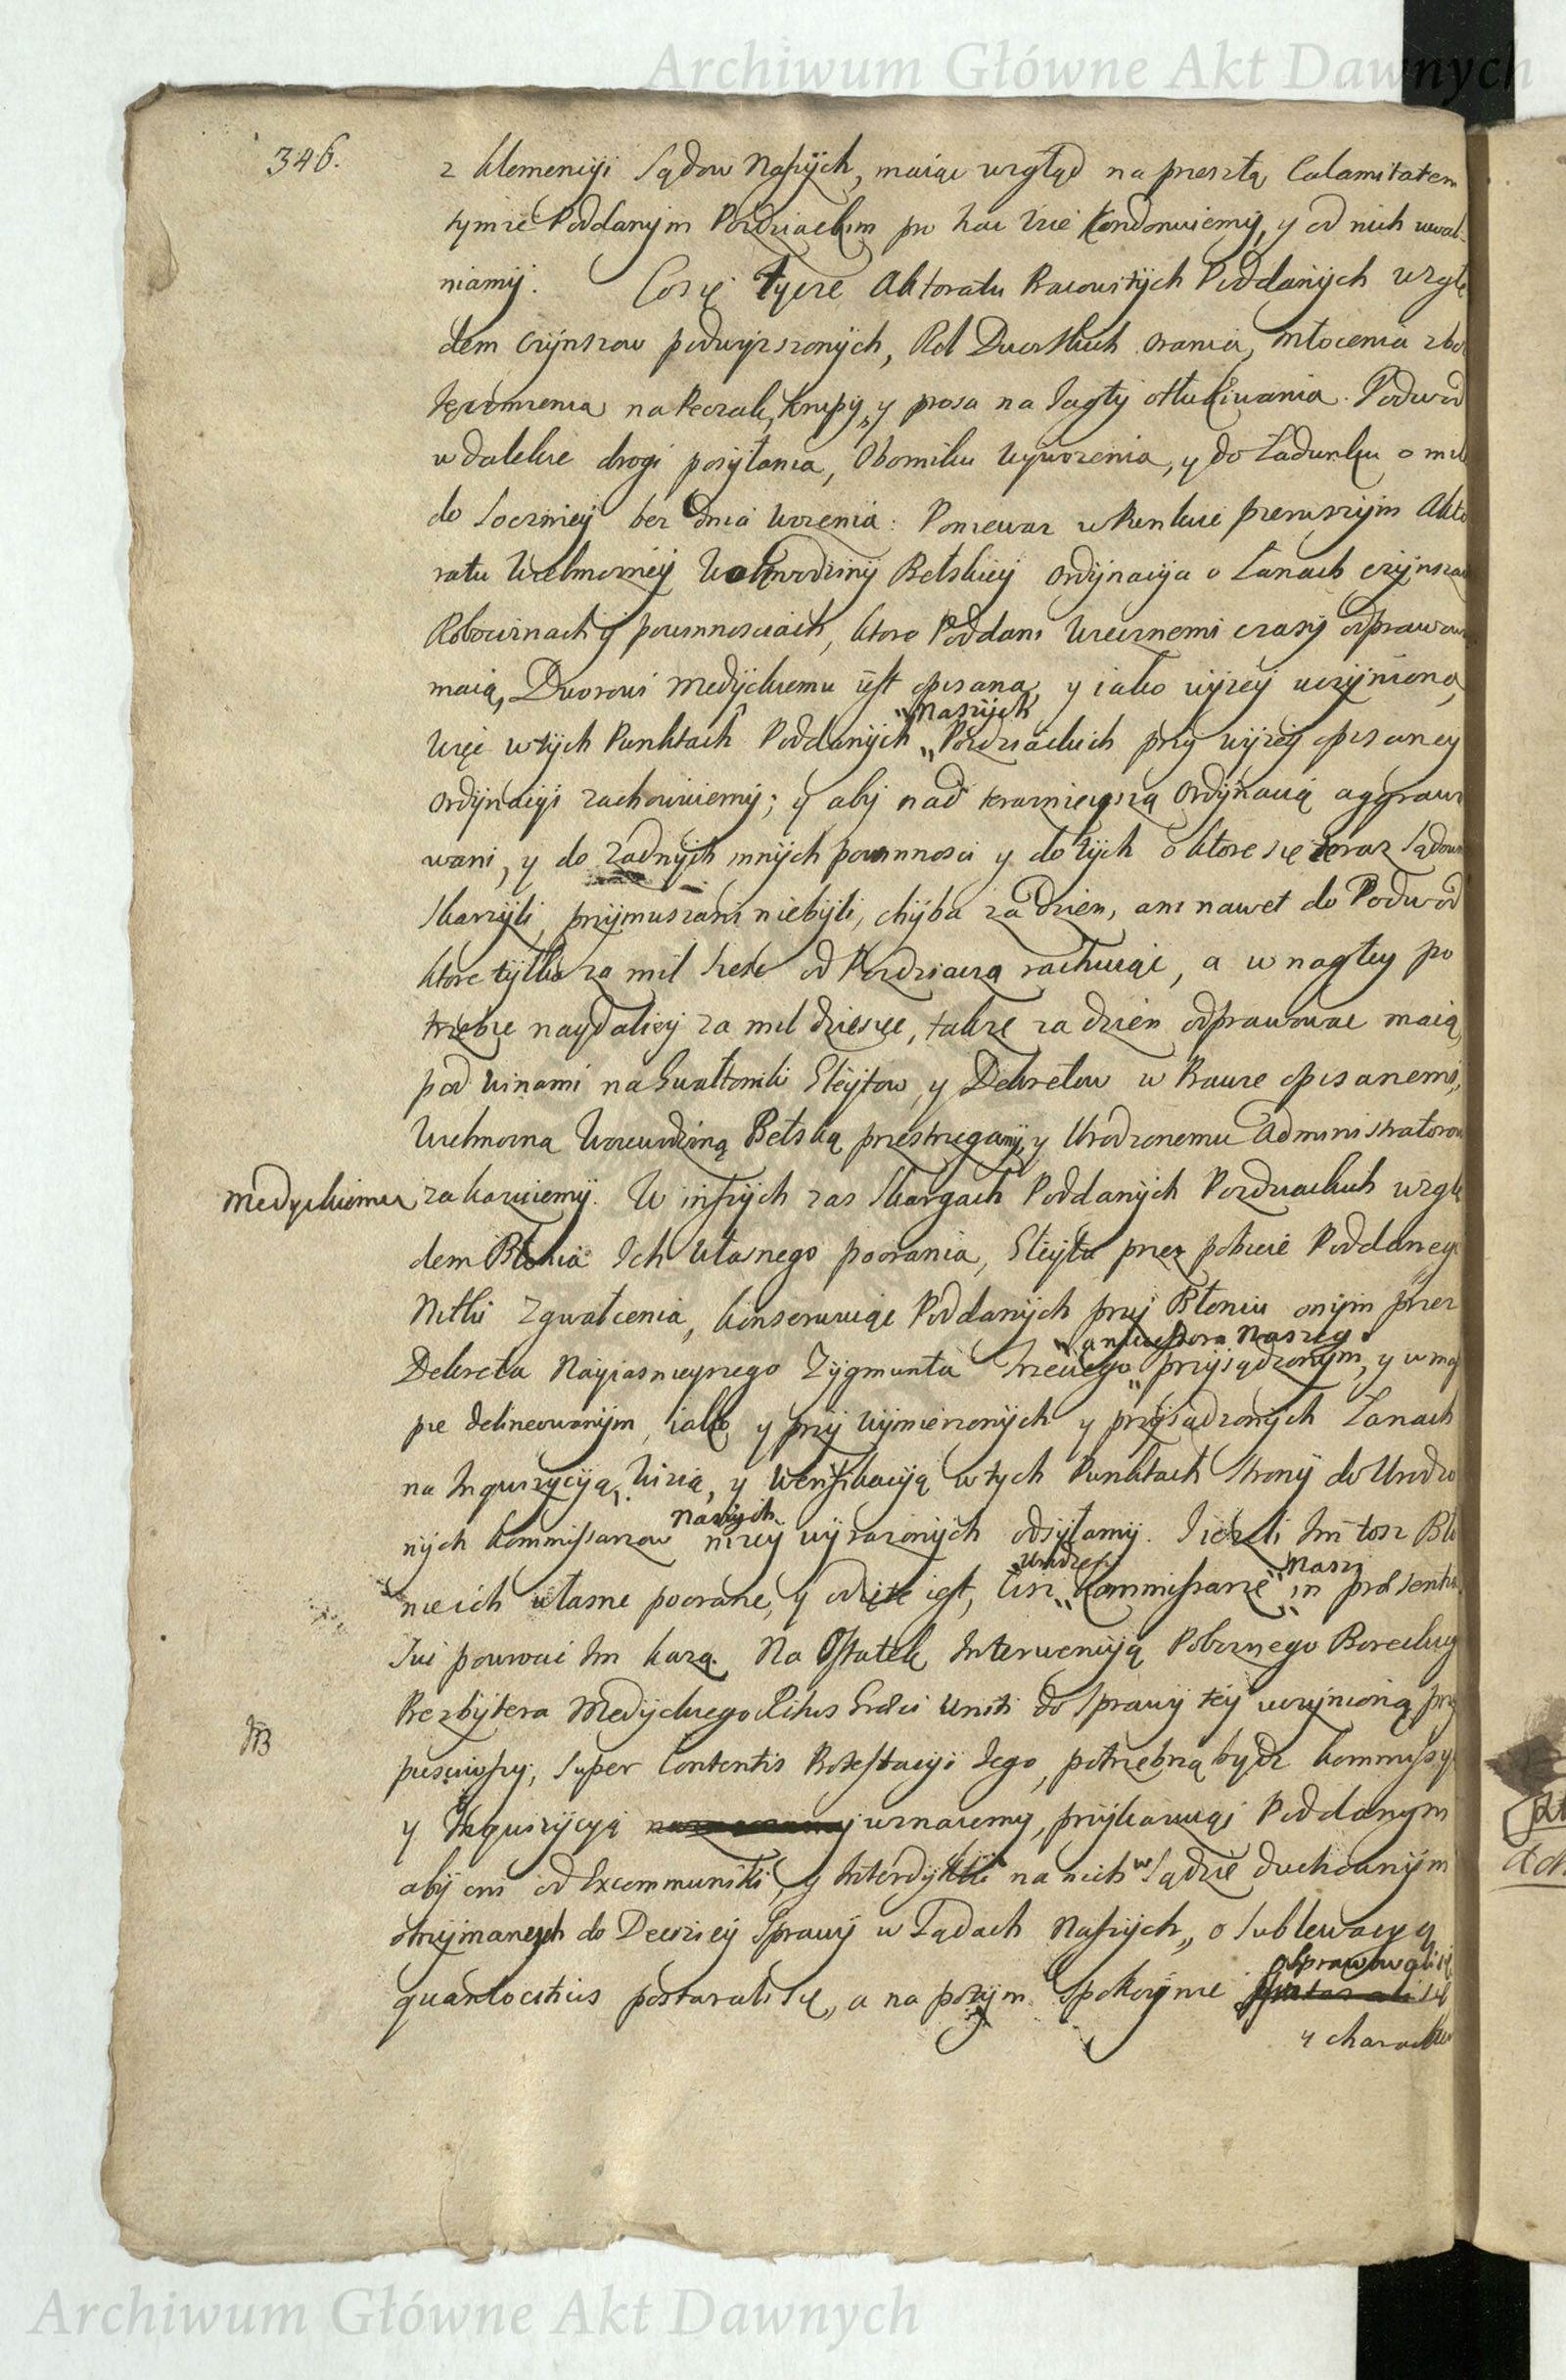 Archiwum Główne Akt Dawnych
346.
z klemencyi Sądow Naszych, maiąc wzgląd na przeszłą Calamitatem
tymze Poddanym Pozdziackim pro hac vice kondonuiemy, y od nich uwal-
niamy. Co się tycze Aktoratu Pracowitych Poddanych wzglę
dem czynszow podwyzszonych, Rol Dworskich orania, młocenia zboz
Jęczmienia na Pęczak, Krupy, y prosa na Jagły otłukiwania. Podwod
w dalekie drogi posyłania, Obornika wywozenia, y do Ładunku o mil
do Soczniey bez dnia wozenia: Poniewaz w Punkcie pierwszym Akto
ratu Wielmozney Woiewodziny Bełskiey ordynacya o Łanach czynszach
Robociznach y powinnosciach, ktore Poddani wiecznemi czasy odprawowac
maią, Dworowi Medyckiemu iest opisana, y iako wyzey uczyniona,
Naszych
więc w tych Punktach Poddanych Pozdziackich przy wyzey opisaney
ordynacyi zachowuiemy; y aby nad teraznieyszą Ordynacią aggrawo
wani, y do zadnych innych powinnosci y do tych o ktore się teraz Sądownie
skarzyli, przymuszani niebyli, chyba za Dzien, ani nawet do Podwod
ktore tylko za mil szesc od Pozdziacza rachuiąc, a w nagłey po
trzebie naydaliey za mil dziesięc, takze za dzien odprawowac maią,
pod winami na Gwałtowniki Gleytow, y Dekretow w Prawie opisanemi,
Wielmozną Woiewodziną Bełską przestrzegamy, y Urodzonemu Administratorowi
Medyckiemu zakazuiemy. W inszych zas skargach Poddanych Pozdziackich wzglę
dem Błonia Ich własnego poorania, Gleytu przez pobicie Poddanego
Nitki zgwałcenia, konserwuiąc Poddanych przy Błoniu onym przez
antecessora Naszego
Dekreta Nayiasnieyszego Zygmunta trzeciego przysądzonym, y w map
pie delineowanym, iako y przy wymierzonych y przysądzonych Łanach
na Inquizycyją, Wizią, y Weryfikacyją w tych Punktach strony do Urodzo
Naszych
nych Kommissarzow nizey wyrazonych odsyłamy. Jezeli Im tosz Bło
Urodzeni Nasi
nie ich własne poorane, y odięte iest, ciz Kommissarze in præsenti
Sui powroci Im kazą. Na Ostatek Interwenyją Poboznego Boreckiego
Prezbytera Medyckiego Ritus Græci Uniti do sprawy tey uczynioną przy
NB
pusciwszy, super Contentis Protestacyi Jego, potrzebną bydz kommissyą
y Inquizycyą uznaiemy, przykazuiąc Poddanym
aby oni od Excommuniki, y Interdyktu na nich w Sądzie duchownym
otrzymanych do Deciziey Sprawy w Sądach Naszych, o sublewacyą
odprawowali się
quantocitius postarali się, a na potym spokoynie się
y charakter
Archiwum Główne Akt Dawnych